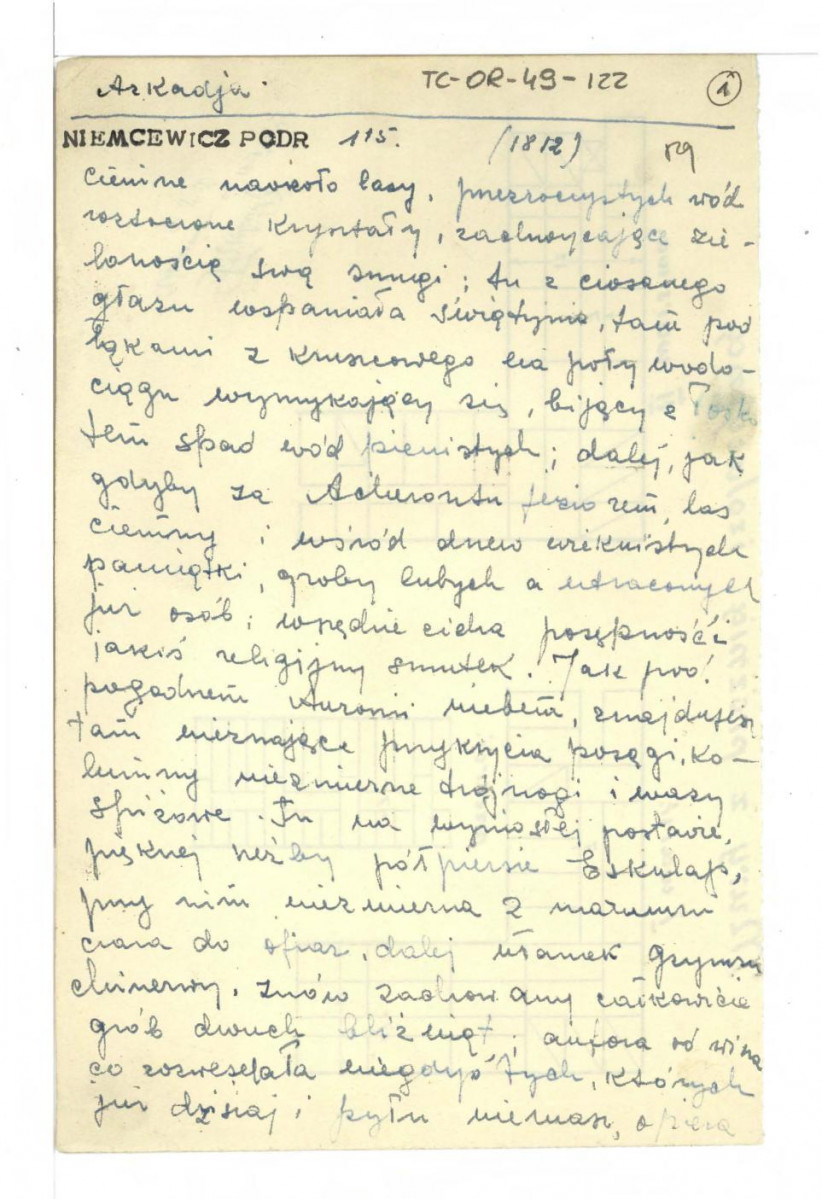 Arkadja.
TC-OR-49-122
1
NIEMCEWICZ PODR 115. (1812)
ciemne naokoło lasy, przezroczystych wód
roztoczone kryształy, zachwycające zie-
lonością swą smugi; tu z ciosanego
głazu wspaniała świątynia, tam pod
łąkami z kruszcowego na poły wodo-
ciągu wymykający się, bijący z łosko
tem spad wód pienistych; dalej, jak
gdyby za Acherontu jeziorem, las
ciemny i wśród drzew wieknistych
pamiątki, groby lubych a utraconych
już osób; wszędzie cicha posępność i
jakiś religijny smutek. Jak pod
pogodnem Auzonii niebem, znajdujesz
tam nieznające przykrycia posągi, ko-
lumny niezmierne trójnogi i wazy
spiżowe. Tu na wyniosłej postawie,
pięknej rzeźby półpiersie Eskulapa,
przy nim niezmierna z marmuru
czara do ofiar, dalej ułamek gzymsu
Minerwy, znów zachowany całkowicie
grób dwuch bliźniąt; amfora od wina
co rozweselała niegdyś tych, których
już dzisiaj i pyłu niemasz, opiera